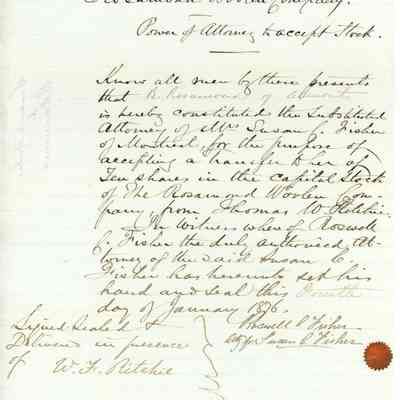 Rosamond Woolen Company.
Power of Attorney to accept Stock.
Know all men by these presents
that B. Rosamond of Almonte
is hereby constituted the Substituted
Attorney of Mrs Susan C. Fisher
of Montreal, for the purpose of
accepting a transfer to her of
Ten shares in the capital Stock
of The Rosamond Woolen Com-
pany, from Thomas W. Ritchie.
In Witness where of Roswell
C. Fisher the duly authorised At-
torney of the said Susan C.
Fisher has hereunto set his
hand and seal this Fourth
day of January 1876.
Signed Sealed &
Delivered in presence
of W. F. Ritchie
Roswell C Fisher
Atty for Susan C Fisher